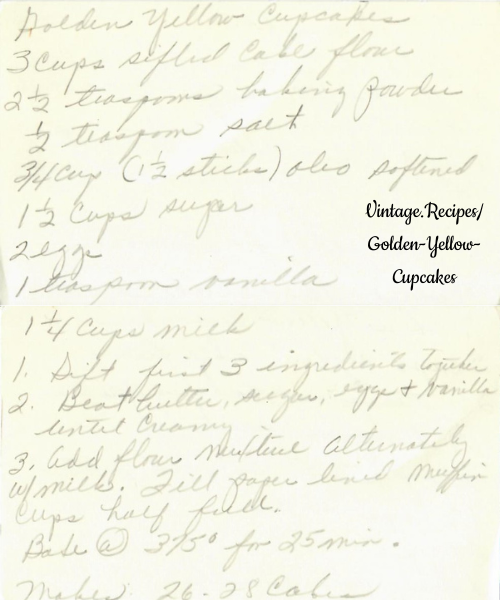 Golden Yellow Cupcakes
3 cups sifted cake flour
2 1/2 teaspoons baking powder
1/2 teaspoon salt
3/4 cup (1 1/2 sticks) oleo softened
1 1/2 cups sugar
2 eggs
1 teaspoon vanilla
Vintage.Recipes/
Golden-Yellow-
Cupcakes
1 1/4 cups milk
1. Sift first 3 ingredients together
2. Beat butter, sugar, eggs + vanilla
until creamy
3. add flour mixture alternately
w/milk. Fill paper lined muffin
cups half full.
Bake @ 375° for 25 min.
Makes 26-28 Cakes